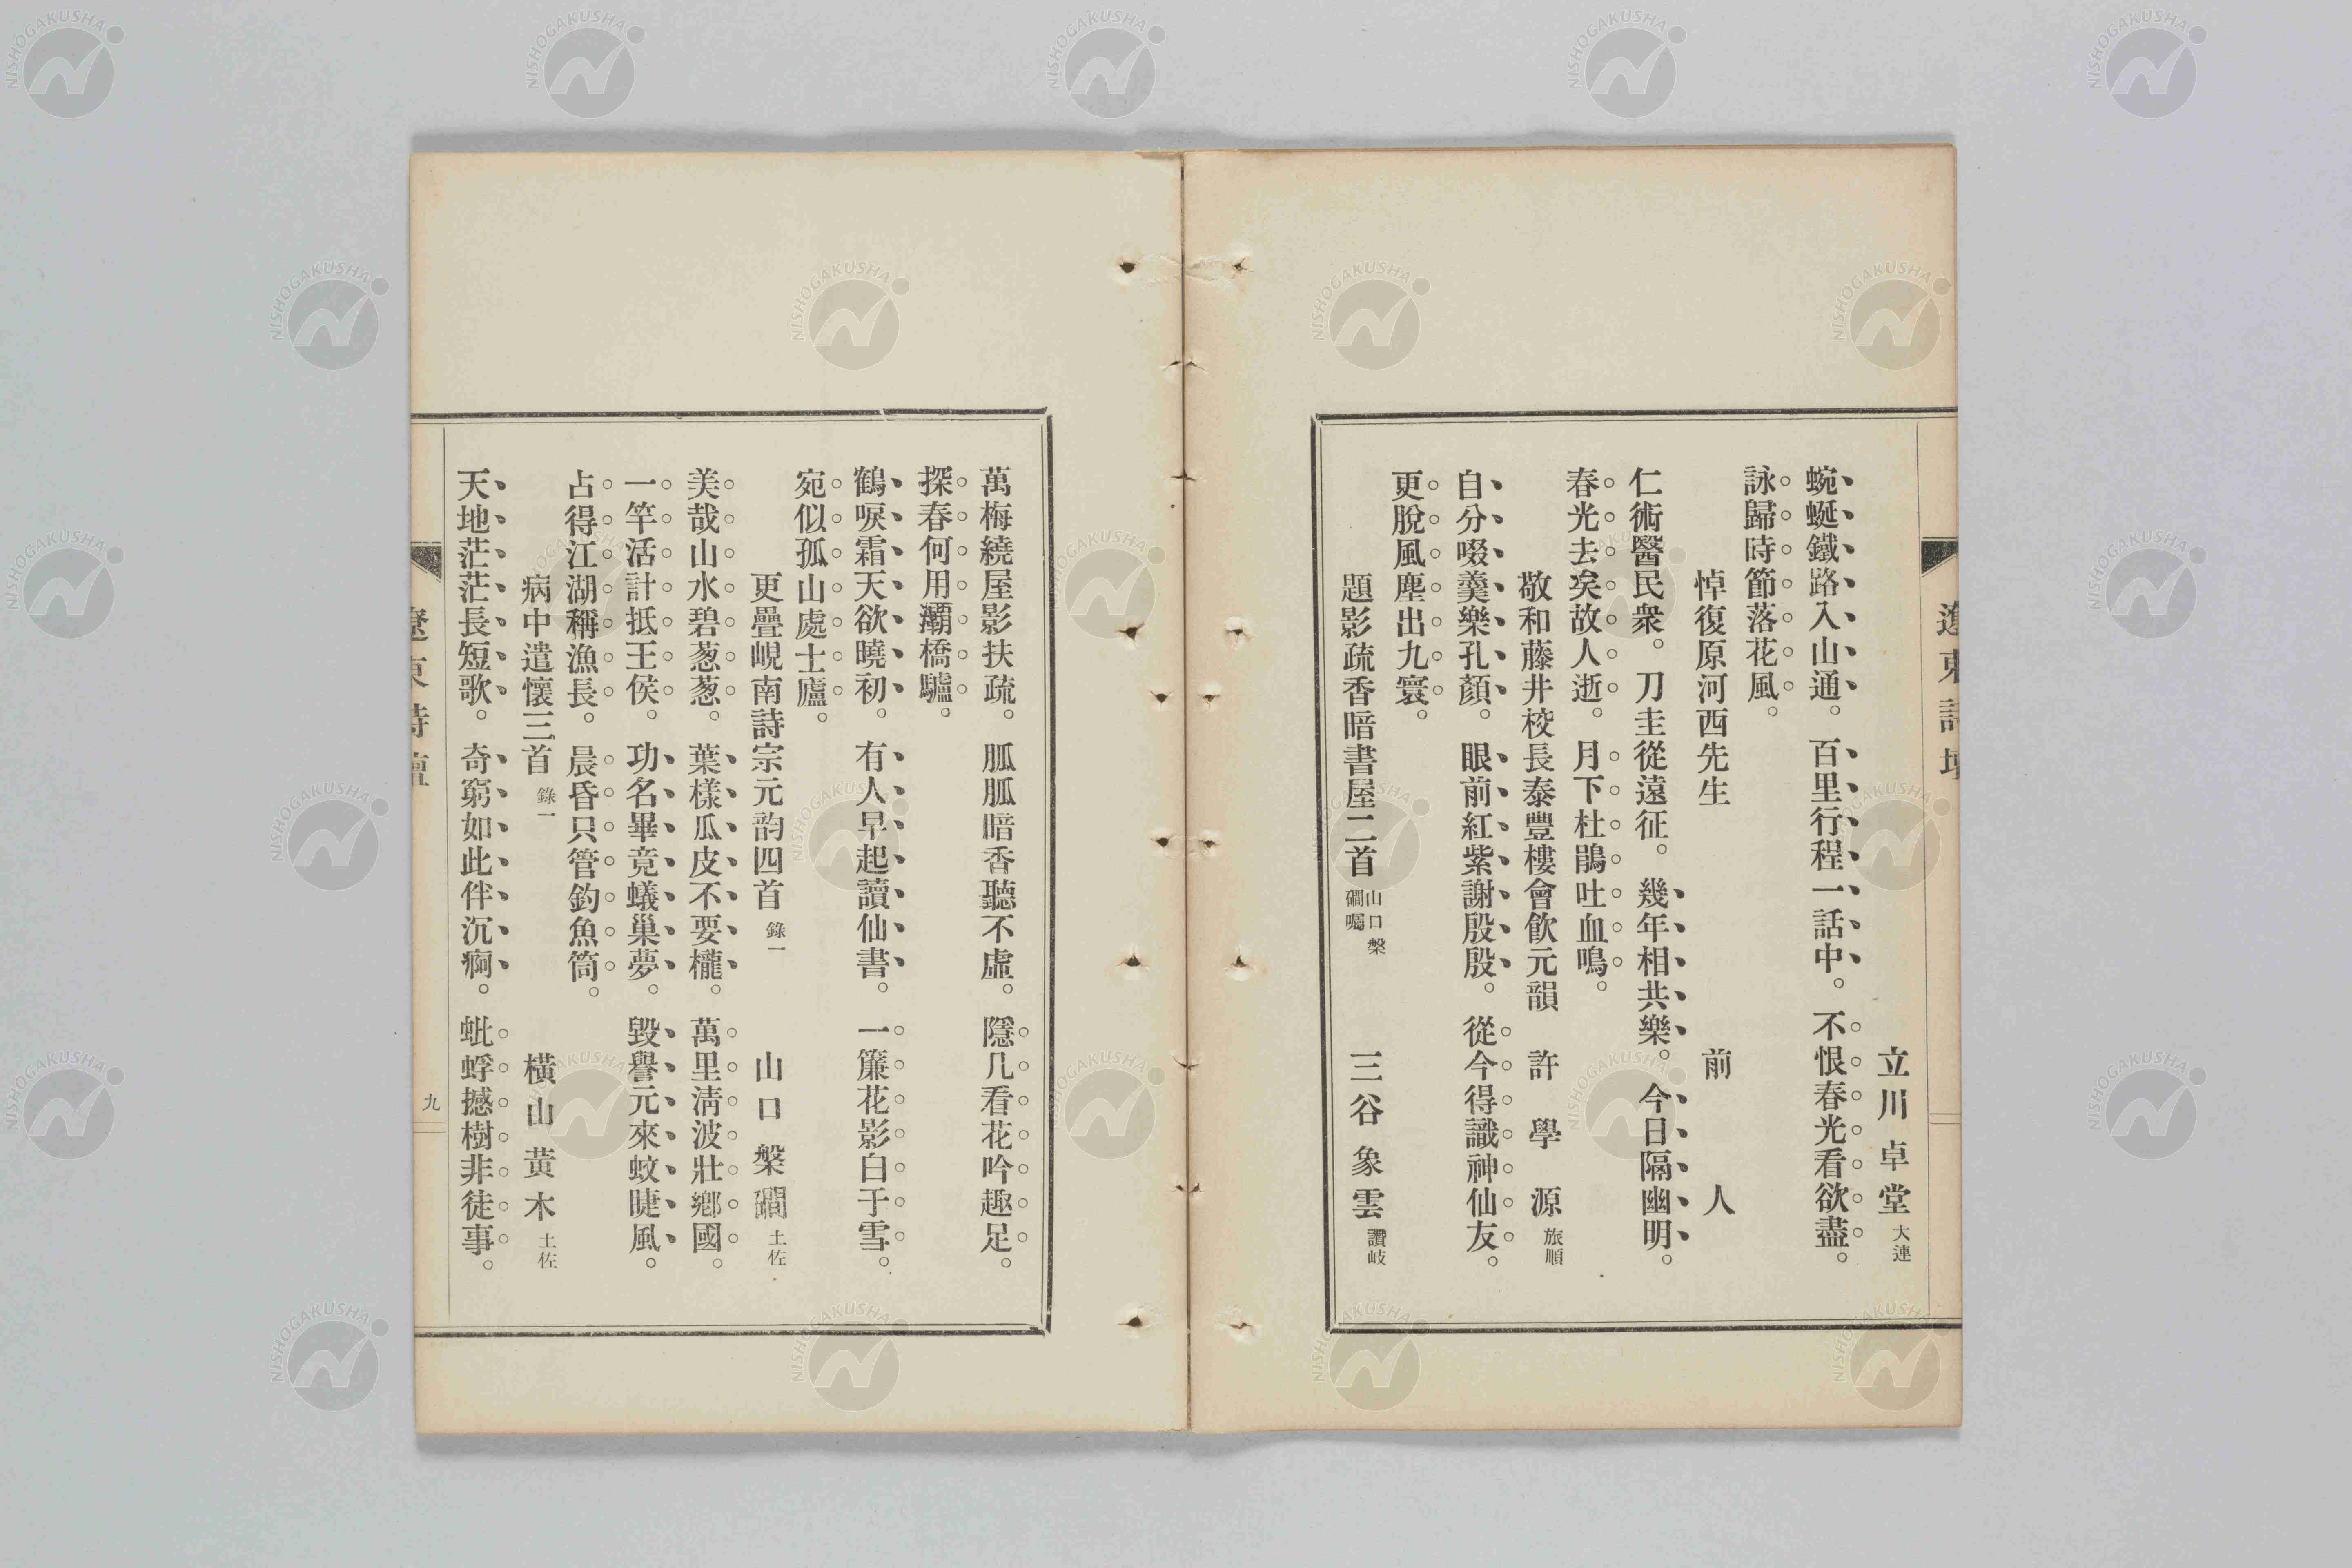 遼東詩壇
立川卓堂 大連
蜿蜒鐵路入山通。百里行程一話中。不恨春光看欲盡。
詠歸時節落花風。
悼復原河西先生 前人
仁術醫民衆。刀圭從遠征。幾年相共樂。今日隔幽明。
春光去矣故人逝。月下杜鵑吐血鳴。
敬和藤井校長泰豐樓會飮元韻 許學源 旅順
自分啜羹樂孔顏。眼前紅紫謝殷殷。從今得識神仙友。
更脫風塵出九寰。
題影疏香暗書屋二首 山口槃磵囑 三谷象雲 讚岐
萬梅繞屋影扶疏。胍胍暗香聽不虛。隱几看花吟趣足。
探春何用灞橋驢。
鶴唳霜天欲曉初。有人早起讀仙書。一簾花影白于雪。
宛似孤山處士廬。
更疊峴南詩宗元韵四首 錄一 山口槃磵 土佐
美哉山水碧葱葱。葉樣瓜皮不要櫳。萬里淸波壯鄕國。
一竿活計抵王侯。功名畢竟蟻巢夢。毀譽元來蚊睫風。
占得江湖稱漁長。晨昏只管釣魚筒。
病中遣懷三首 錄一 橫山黃木 土佐
天地茫茫長短歌。奇窮如此伴沉痾。蚍蜉撼樹非徒事。
遼東詩壇
九
NISHOGAKUSHA